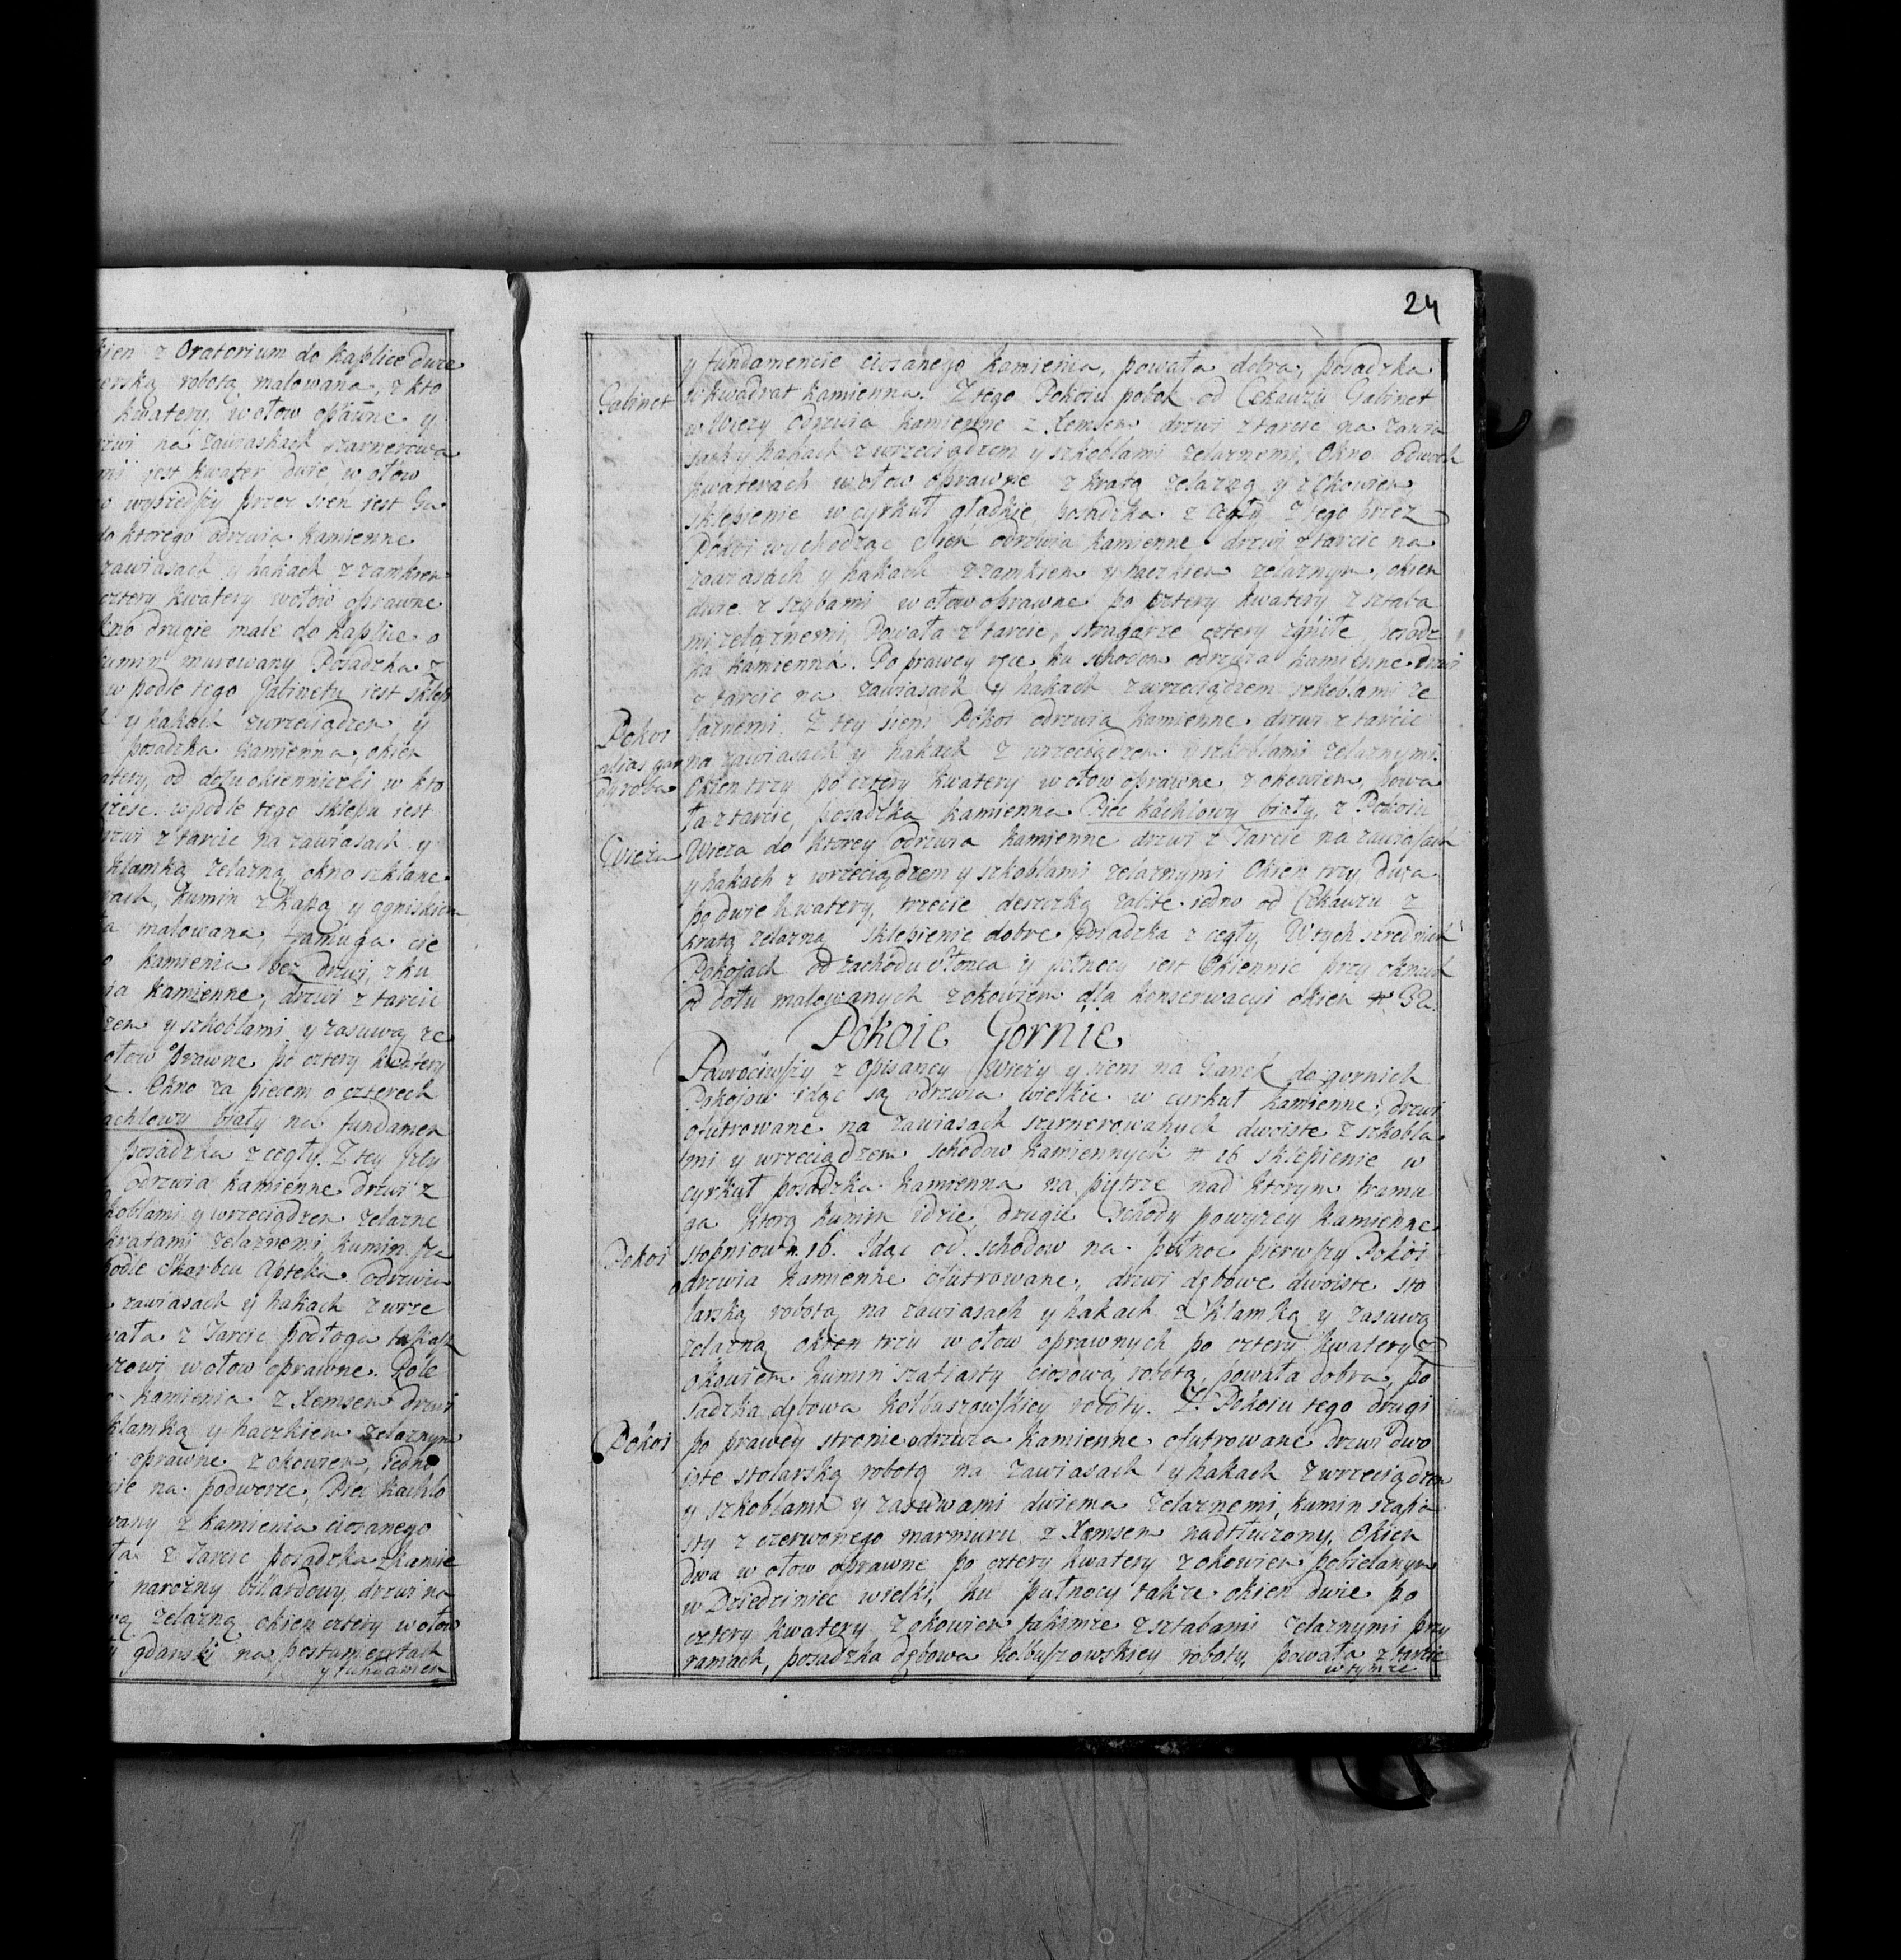 kien z Oratorium do kaplice dwie
erską robotą malowana, z kto
kwatery w ołow oprawne y
rzwi na zawiaskach szarnerowa
mi jest kwater dwie w ołow
o wyszedszy przez sień iest Ga
do ktorego odrzwia kamienne
zawiasach y hakach z zamkiem
cztery kwatery w ołow oprawne
kno drugie małe do kaplice o
kumin murowany Posadzka z
w podle tego Gabinetu iest sklep
y hakach z wrzeciądzem y
posadzka kamienna, okien
atery, od dołu okienniczki w kto
rzesc. wpodle tego sklepu iest
rzwi z tarcic na zawiasach y
klamką zelazną okno szklane
rach, kumin z kapą y ogniskiem
ta malowana, framuga cio
o kamienia bez drzwi, z ku
ia kamienne, drzwi z tarcic
zem y szkoblami y zasuwą ze
ołow oprawne po cztery kwatery
k. Okno za piecem o czterech
achlowy biały na fundamen
posadzka z cegły. Z tey Izby
odrzwia kamienne drzwi z
koblami y wrzeciądzem zelazne
kratami zelaznemi, kumin sza
podle Skarbcu Apteka odrzwia
zawiasach y hakach z wrze
wała z Tarcic podłoga takasz
rzowi w ołow oprawne. Pole
o kamienia z Xemsem drzwi
klamką y haczkiem zelaznym
oprawne z okowiem, Iedno
cie na podworze, Piec kachlo
wany z kamienia ciosanego
ła z Tarcic posadzka z kamie
i narożny billardowy, drzwi na
wą zelazną okien cztery w ołow
y gdanski na postumentach
y fundamen
24
y fundamencie ciosanego kamienia, powała dobra, posadzka
Gabinet
w kwadrat kamienna. Z tego Pokoiu pobok od Cekauzu Gabinet
w Wiezy odrzwia kamienne z Xemsem drzwi z tarcic na zawia
sach y hakach z wrzeciądzem y szkoblami zelaznemi, Okno o dwoch
kwaterach w ołow oprawne z kratą zelazną y z Okowiem
sklepienie w cyrkuł gładkie posadzka z cegły z tego przez
Pokoi wychodząc Sień odrzwia kamienne drzwi z tarcic na
zawiasach y hakach z zamkiem y haczkiem zelaznym, okien
dwie z szybami w ołow oprawne po cztery kwatery z sztaba
mi zelaznemi, Powała z tarcic, stragarze cztery zgniłe, posadz
ka kamienna. Po prawey ręce ku schodom odrzwia kamienne drzwi
z tarcic na zawiasach y hakach z wrzeciądzem szkoblami ze
Pokoi
laznemi. Z tey sieni Pokoi odrzwia kamienne drzwi z tarcic
alias gar
na zawiasach y hakach z wrzeciądzem y szkoblami zelaznymi.
dyroba
Okien trzy po cztery kwatery w ołow oprawne z okowiem, powa
ła z tarcic, posadzka kamienna Piec kachlowy biały, z Pokoiu
Wieża
Wieza do ktorey odrzwia kamienne drzwi z Tarcic na zawiasach
y hakach z wrzeciądzem y szkoblami zelaznymi Okien trzy dwa
po dwie kwatery, trzecie deszczką zabite iedno od Cekauzu z
kratą zelazną sklepienie dobre Posadzka z cegły W tych szrednich
Pokojach od zachodu Słonca y pułnocy iest Okiennic przy oknach
od dołu malowanych z okowiem dla konserwacyi okien # 32.
Pokoie Gornie
Powrociwszy z opisaney Wieży y sieni na Ganek do gornich
Pokojow idąc są odrzwia wielkie w cyrkuł kamienne, drzwi
ofutrowane na zawiasach szarnerowanych dwoiste z szkobla
mi y wrzeciądzem schodow kamiennych # 16 sklepienie w
cyrkuł posadzka kamienna na pietrze nad ktorym framu
ga ktorą kumin idzie, drugie Schody powyzey kamienne
Pokoi
stopniow # 16. Idąc od schodow na pułnoc pierwszy Pokoi
odrzwia kamienne ofutrowane, drzwi dębowe dwoiste sto
larską robotą na zawiasach y hakach z klamką y zasuwą
zelazną okien trzy w ołow oprawnych po cztery kwatery z
okowiem kumin szafiasty ciosową robotą, powała dobra, po
sadzka dębowa kolbuszowskiey roboty. Z Pokoiu tego drugi
Pokoi
po prawey stronie odrzwia kamienne ofutrowane drzwi dwo
iste stolarską robotą na zawiasach y hakach z wrzeciądzem
y szkoblami y zasuwami dwiema zelaznemi, kumin szafia
sty z czerwonego marmuru z Xemsem nadtłuczony, Okien
dwa w ołow oprawne po cztery kwatery z okowiem pobielanym
w Dziedziniec wielki, ku pułnocy także okien dwie po
cztery kwatery z okowiem takimże z sztabami zelaznymi przy
ramach, posadzka dębowa kolbuszowskiey roboty, powała z tarcic
w tymże